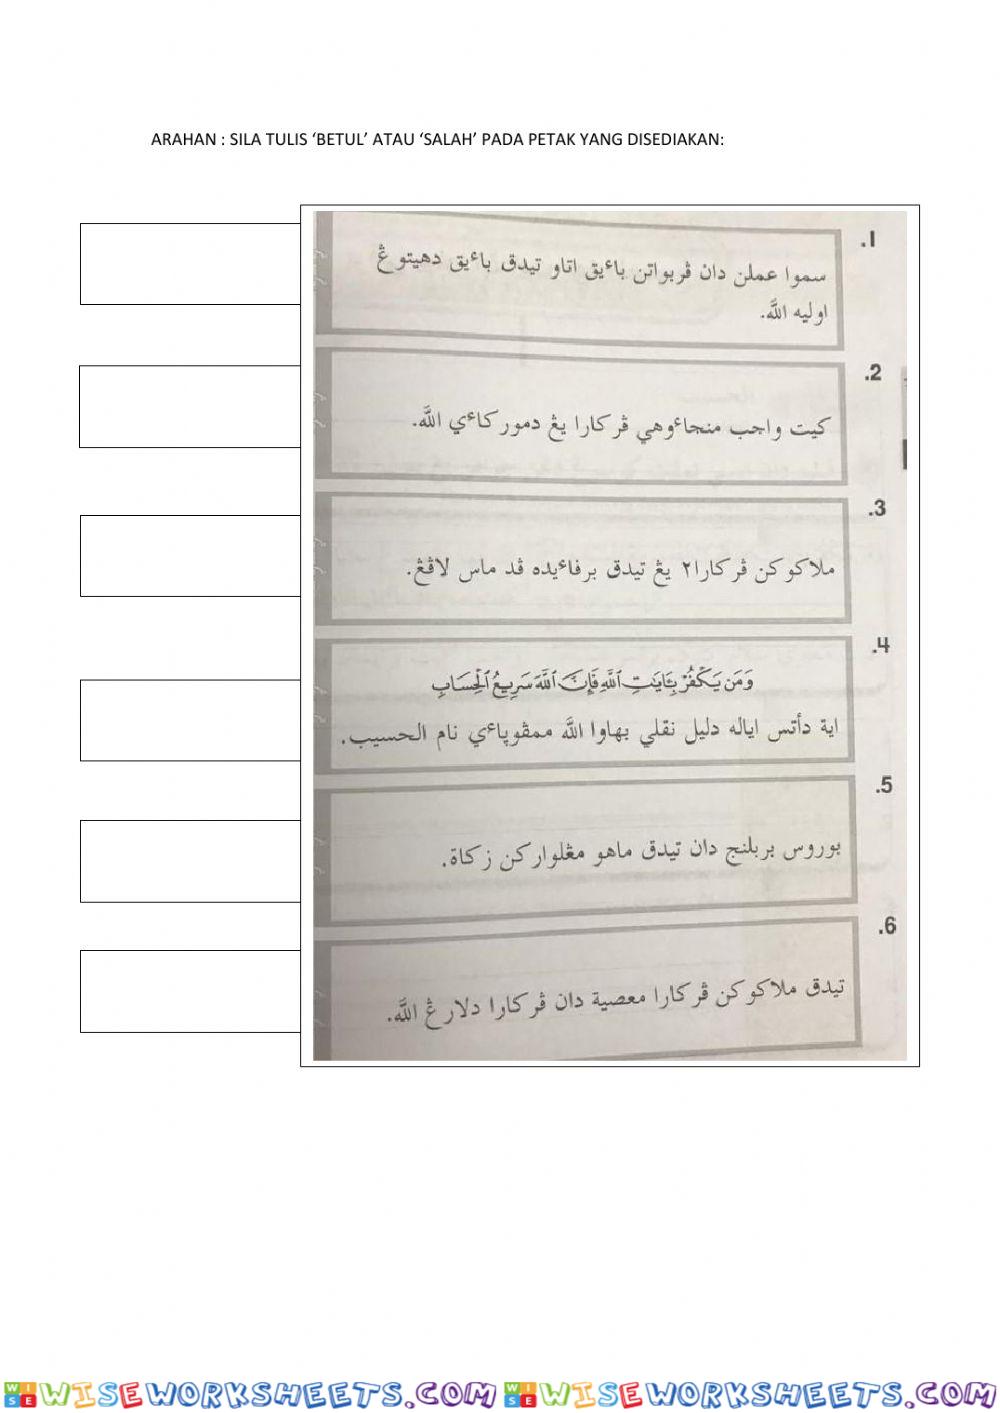 ARAHAN : SILA TULIS ‘BETUL’ ATAU ‘SALAH’ PADA PETAK YANG DISEDIAKAN:
.1
سموا عملن دان ڤربواتن باءيق اتاو تيدق باءيق دهيتوڠ
اوليه الله.
.2
كيت واجب منجاءوهي ڤركارا يڠ دموركاءي الله.
.3
ملاكوكن ڤركارا٢ يڠ تيدق برفاءيده ڤد ماس لاڤڠ.
.4
وَمَن يَكْفُرْ بِـَٔايَٰتِ ٱللَّهِ فَإِنَّ ٱللَّهَ سَرِيعُ ٱلْحِسَابِ
اية دأتس اياله دليل نقلي بهاوا الله ممڤوڽاءي نام الحسيب.
.5
بوروس بربلنج دان تيدق ماهو مڠلواركن زكاة.
.6
تيدق ملاكوكن ڤركارا معصية دان ڤركارا دلارڠ الله.
WISEWORKSHEETS.COM WISEWORKSHEETS.COM